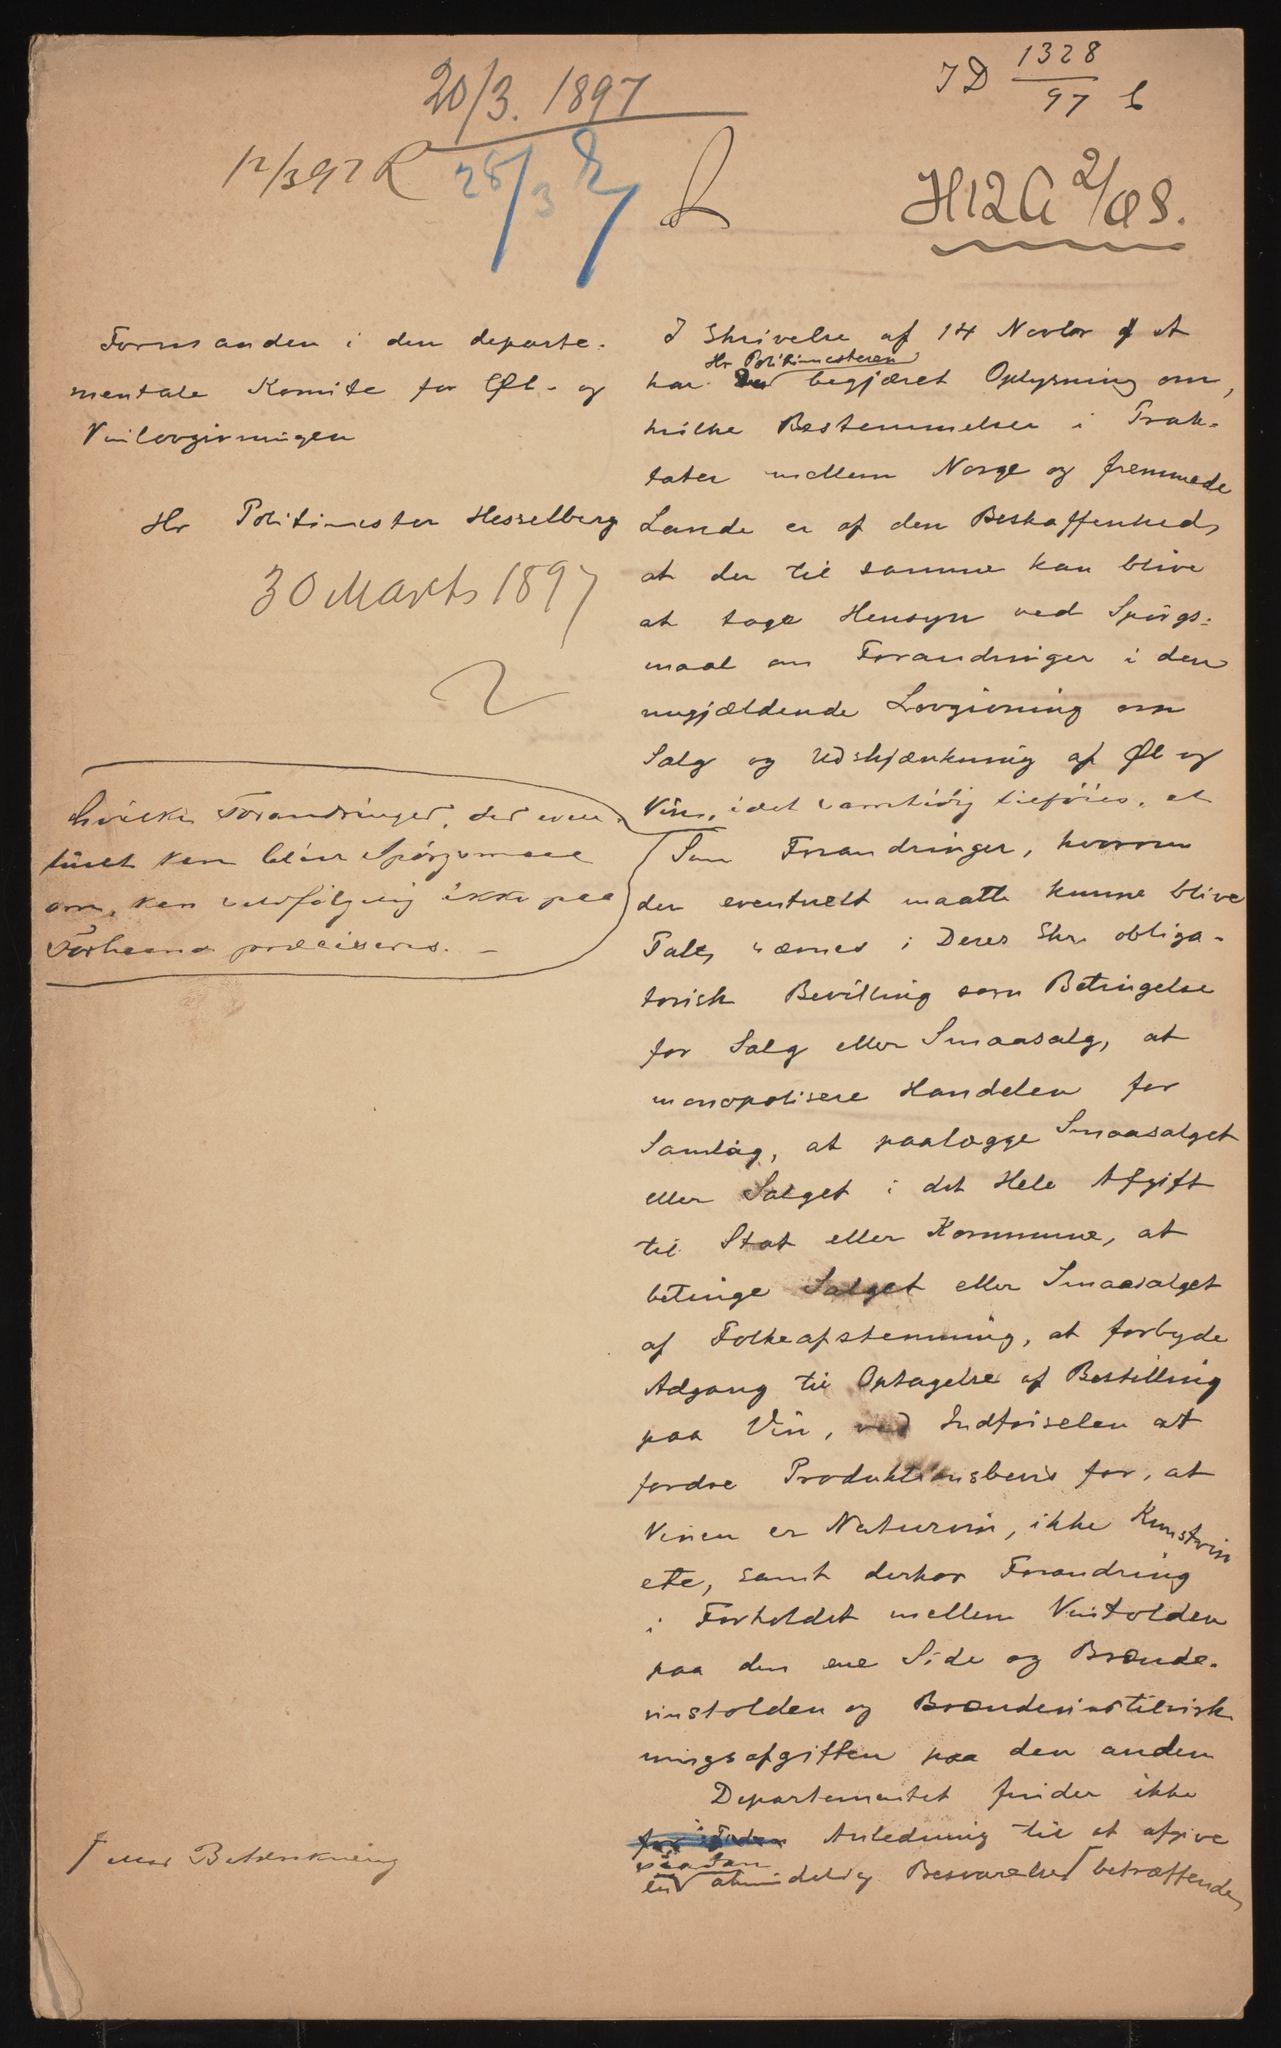 20/3. 1897
JD 1328/97 L
12/3 97 R
28/3
H12A 2/08.
Formanden i den departe-
mentale Komite for Øl- og
Vinlovgivningen
Hr Politimester Hesselberg
30 Marts 1897
I Skrivelse af 14 Novbr f A
Hr Politimesteren
har De begjæret Oplysning om,
hvilke Bestemmelser i Trak-
tater mellem Norge og fremmede
Lande er af den Beskaffenhed,
at der til samme kan blive
at tage Hensyn ved Spörgs-
maal om Forandringer i den
nugjældende Lovgivning om
Salg og Udskjænkning af Øl og
Vin, idet samtidig tilföies, at
hvilke Forandringer, der even-
tuelt kan blive Spörgsmaal
om, kan selvfölgelig ikke paa
Forhaand præciseres. -
Som Forandringer, hvorom
der eventuelt maatte kunne blive
Tale, nævnes i Deres Skr obliga-
torisk Bevilling som Betingelse
for Salg eller Smaasalg, at
monopolisere Handelen for
Samlag, at paalægge Smaasalget
eller Salget i det Hele Afgift
til Stat eller Kommune, at
betinge Salget eller Smaasalget
af Folkeafstemning, at forbyde
Adgang til Optagelse af Bestilling
paa Vin, ved Indförselen at
fordre Produktionsbevis for, at
Vinen er Naturvin, ikke Kunstvin
etc, samt derhos Forandring
i Forholdet mellem Vintolden
paa den ene Side og Brænde-
vinstolden og Brændevinstilvirk-
ningsafgiften paa den anden
Departementet finder ikke
Anledning til at afgive
saadan
en almindelig Besvarelse betræffende,